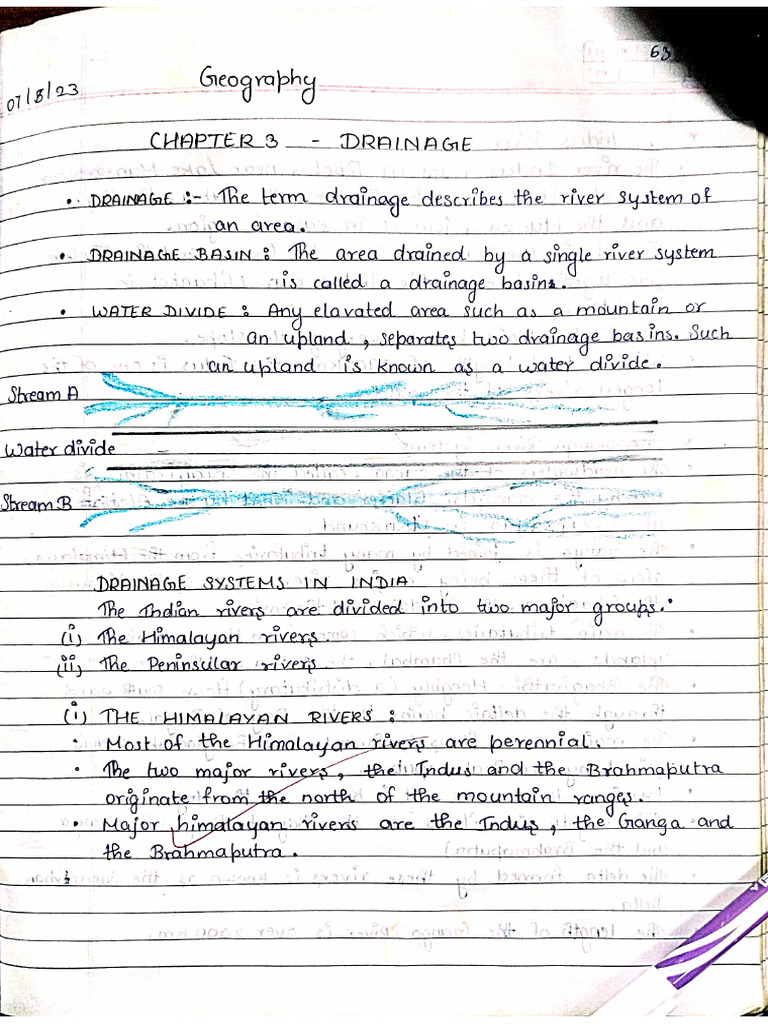 63
Geography
07/8/23
CHAPTER 3 - DRAINAGE
• DRAINAGE :- The term drainage describes the river system of
an area.
• DRAINAGE BASIN : The area drained by a single river system
is called a drainage basin.
• WATER DIVIDE : Any elavated area such as a mountain or
an upland, separates two drainage basins. Such
an upland is known as a water divide.
Stream A
Water divide
Stream B
DRAINAGE SYSTEMS IN INDIA
The Indian rivers are divided into two major groups.
(i) The Himalayan rivers.
(ii) The Peninsular rivers
(i) THE HIMALAYAN RIVERS :
• Most of the Himalayan rivers are perennial.
• The two major rivers, the Indus and the Brahmaputra
originate from the north of the mountain ranges.
• Major himalayan rivers are the Indus, the Ganga and
the Brahmaputra.